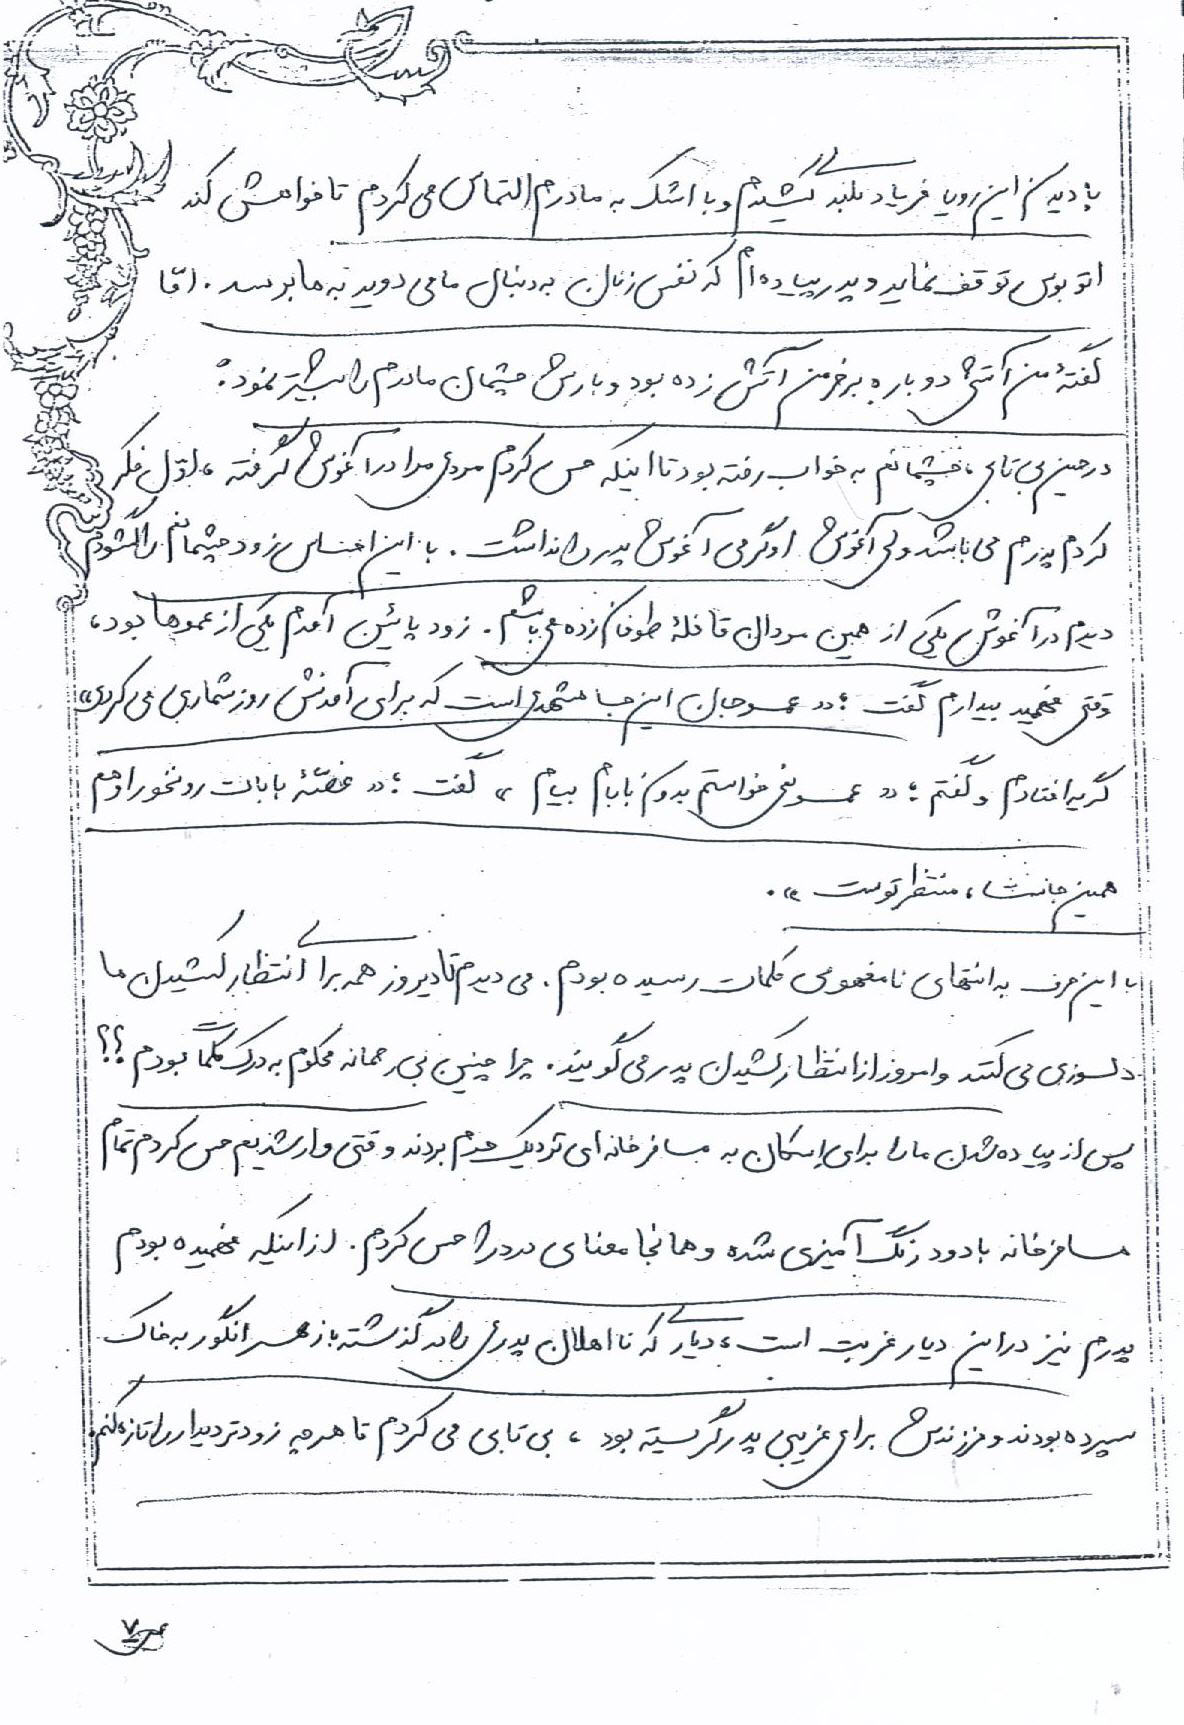 با دیدن این رویا فریاد بلندی کشیدم و با اشک به مادرم التماس می کردم تا خواهش کند
اتوبوس توقف نماید و پدر پیاده ام که نفس زنان به دنبال ما می دوید به ما برسد . امّا
گفتهٔ من آتشی دوباره بر خرمن آتش زده بود و بارش چشمان مادرم را بیشتر نمود :
در حین بی تابی ، چشمانم به خواب رفته بود تا اینکه حس کردم مردی مرا در آغوش گرفته ، اوّل فکر
کردم پدرم می باشد ولی آغوش او گرمی آغوش پدر را نداشت . با این احساس زود چشمانم را گشودم
دیدم در آغوش یکی از همین مردان قافلهٔ طوفان زده می باشم . زود پائین آمدم یکی از عموها بود ،
وقتی فهمید بیدارم گفت : « عمو جان این جا مشهدی است که برای آمدنش روز شماری می کردی »
گریه افتادم و گفتم : « عمو نمی خواستم بدون بابام بیام » گفت : « غصّهٔ بابات رو نخور اوهم
همین جاست ، منتظر توست » .
با این حرف به انتهای نامفهومی کلمات رسیده بودم . می دیدم تا دیروز همه برای انتظار کشیدن ما
دلسوزی می کنند و امروز از انتظار کشیدن پدر می گویند . چرا چنین بی رحمانه محکوم به درک کلمات بودم ؟؟
پس از پیاده شدن ما را برای اسکان به مسافرخانه ای نزدیک حرم بردند وقتی وارد شدیم حس کردم تمام
مسافرخانه با دود رنگ آمیزی شده و همانجا معنای درد را حس کردم . از اینکه فهمیده بودم
پدرم نیز در این دیار غربت است ، دیاری که نااهلان پدری را در گذشته با زهر انگور به خاک
سپرده بودند و فرزندش برای غریبی پدر گریسته بود ، بی تابی می کردم تا هر چه زودتر دیدار را تازه کنم .
۷